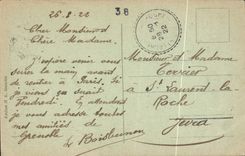 26-8-22
38
Cher Monsieur et
Chère Madame.
J'espère venir vous
serrer la main avant
de rentrer à Paris. Si
je viens ça serait
Vendredi. En attendant
je vous adresse toutes
mes amitiés de
Grenoble
Monsieur et Madame
Terrier
à St Laurent-la-
Roche
Jura